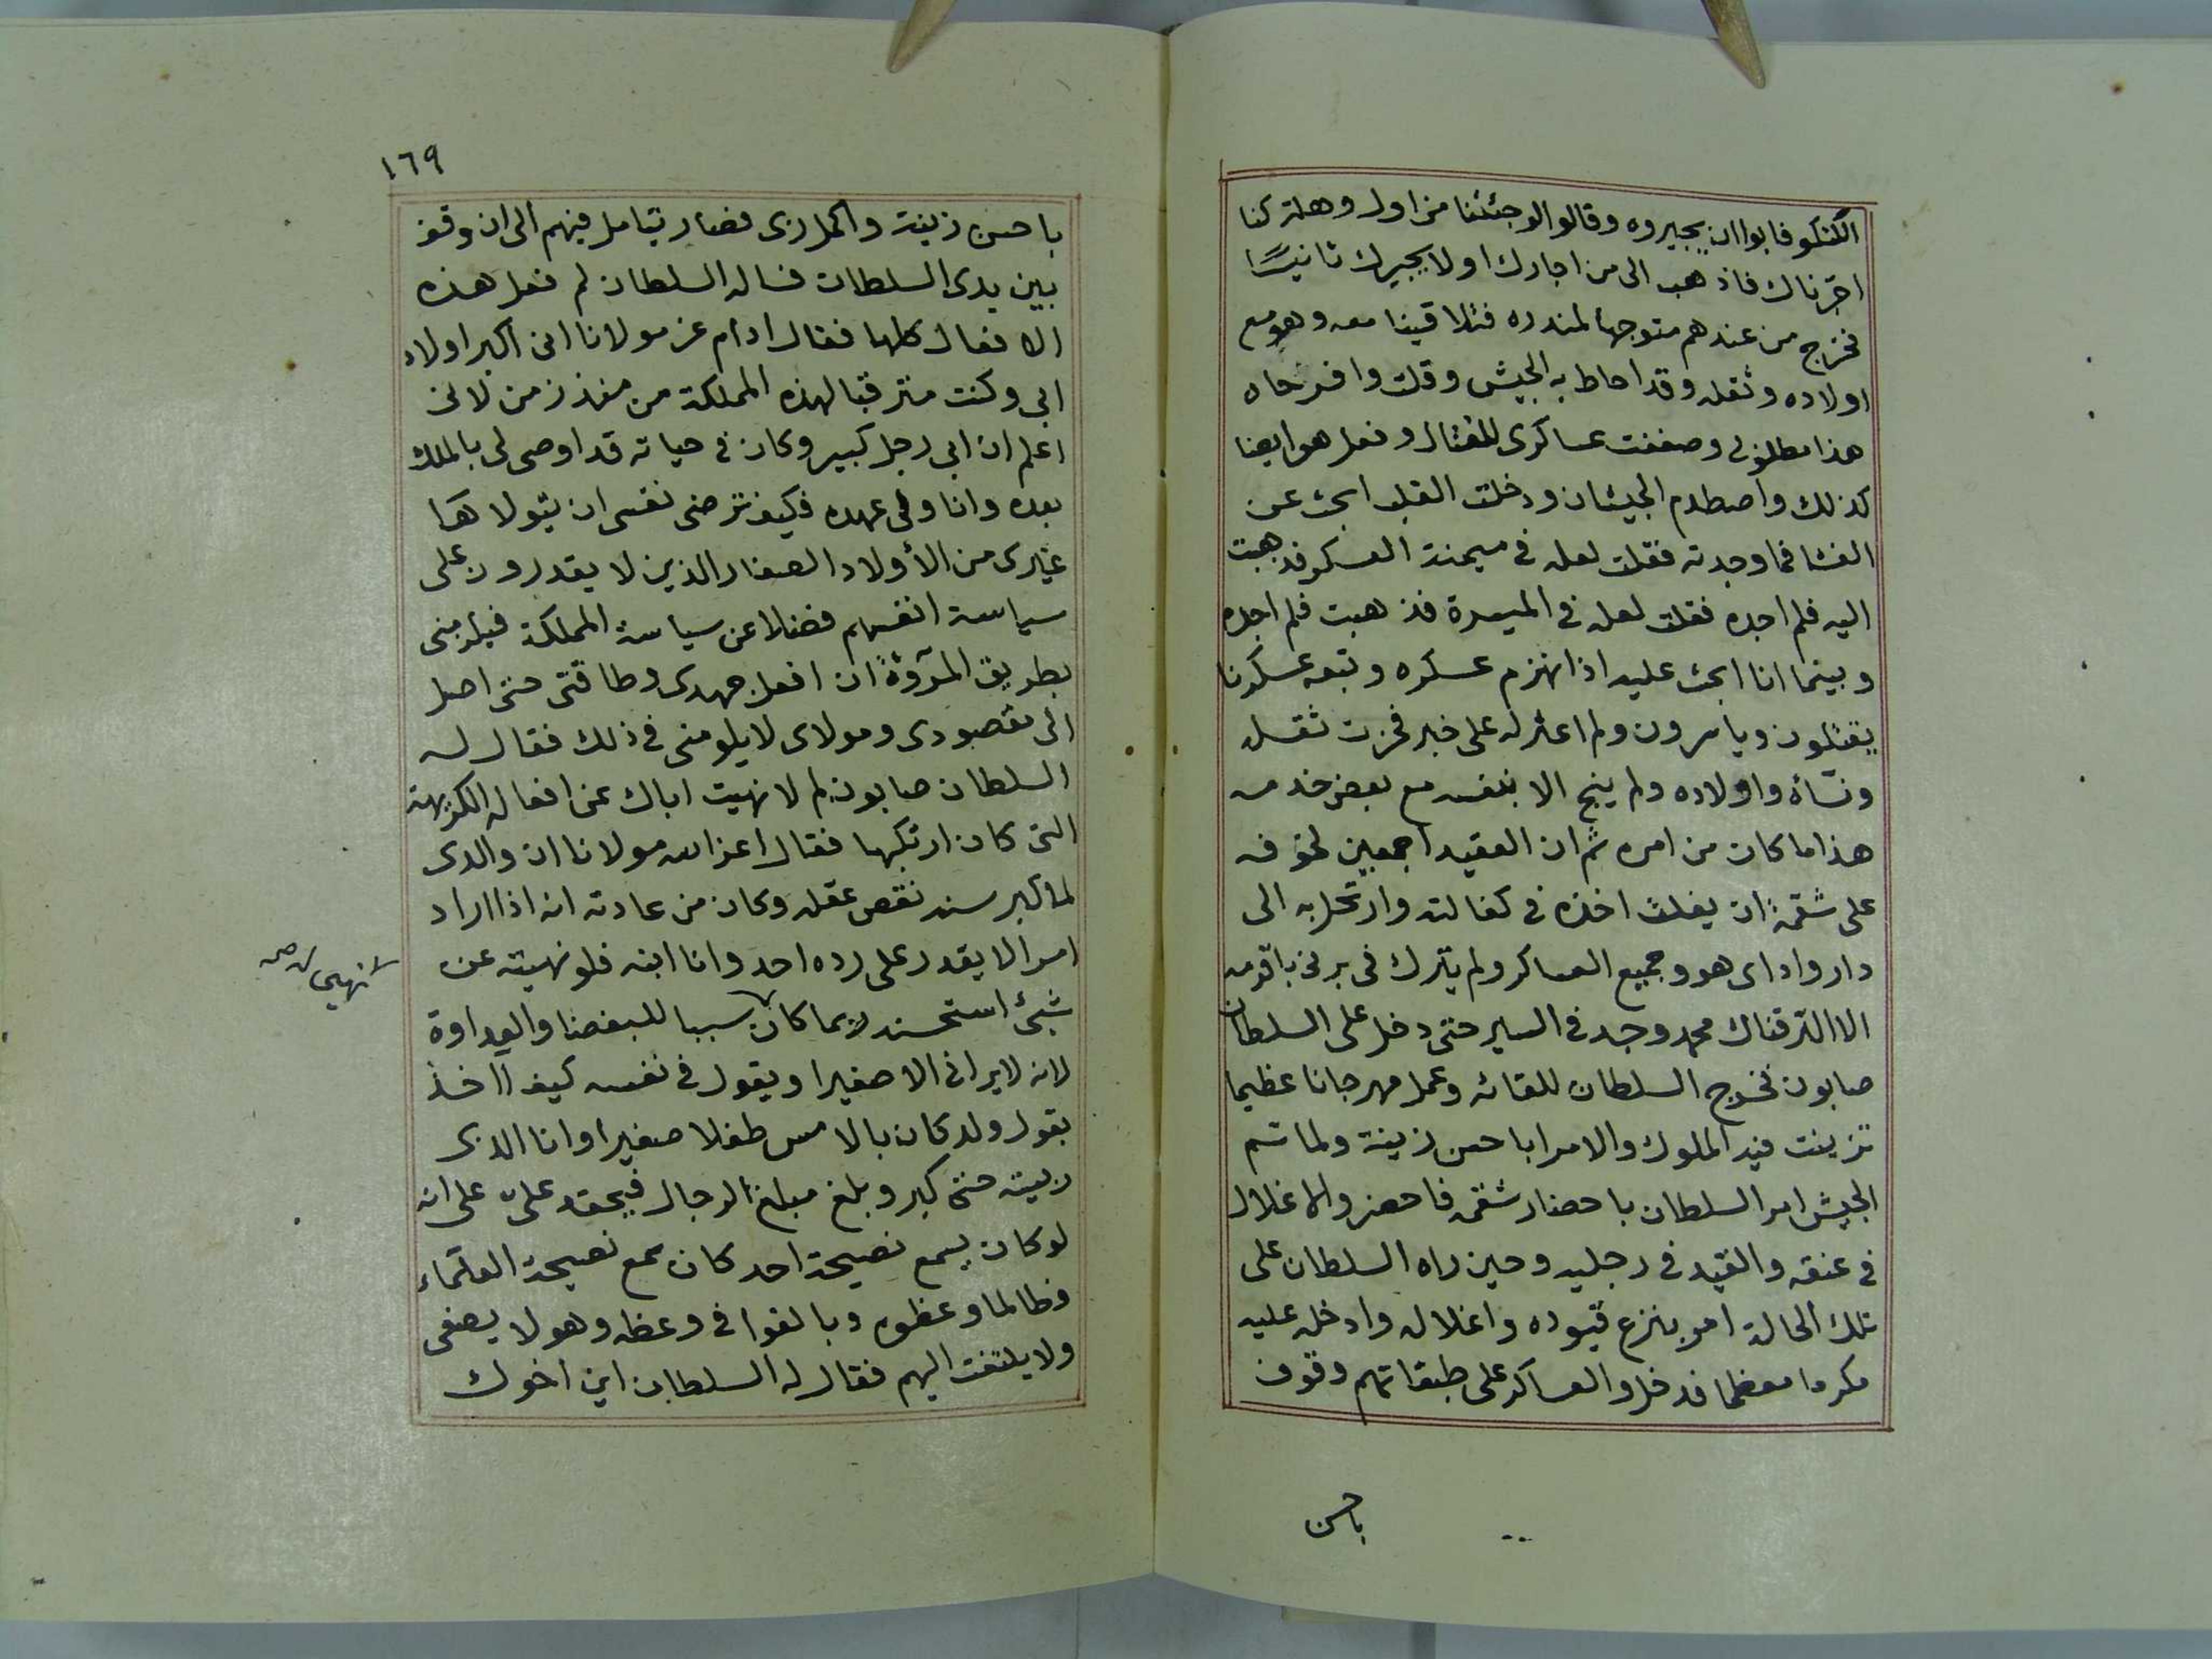 الكنكو فابوا ان يجيروه وقالو الو جئتنا من اول وهلة كنا
اجرناك فاذهب الى من اجارك اولا يجيرك ثانيًا
فخرج من عندهم متوجها لمندره فتلاقينا معه وهو مع
اولاده وثقله وقد احاط به الجيش وقلت وافرحاه
هذا مطلوبى وصففت عساكرى للقتال وفعل هو ايضا
كذلك واصطدم الجيشان ودخلت القلب ابحث عن
الفشا فما وجدته فقلت لعله فى ميمنة العسكر فذهبت
اليه فلم اجده فقلت لعله فى الميسرة فذهبت فلم اجده
وبينما انا ابحث عليه اذا نهزم عسكره وتبعه عسكرنا
يقتلون وياسرون ولم اعثر له على خبر فحزت ثقله
ونساه واولاده ولم ينج الا بنفسه مع بعض خدمه
هذا ما كان من امره ثم ان العقيد اجمعين لخوفه
على شقمة ان يفلت اخذه فى كفالته وارتحل به الى
دار واداى هو وجميع العساكر ولم يترك فى برنى باقرمه
الا الترقناك محمد وجد فى السير حتى دخل على السلطان
صابون فخرج السلطان للقائه وعمل مهرجانا عظيما
تزينت فيه الملوك والامرا باحسن زينة ولما تم
الجيش امر السلطان باحضار شقمه فاحضر والاغلال
فى عنقه والقيد فى رجليه وحين راه السلطان على
تلك الحالة امر بنزع قيوده واغلاله وادخله عليه
مكرما معظما فدخل والعساكر على طبقاتهم وقوف
باحسن
١٦٩
باحسن زينة واكمل زى فصار يتامل فيهم الى ان وقف
بين يدى السلطان فساله السلطان لم فعل هذه
الافعال كلها فقال ادام عز مولانا انى اكبر اولاد
ابى وكنت مترقبا لهذه المملكة من منذ زمن لانى
اعلم ان ابى رجل كبير وكان فى حياته قد اوصى لى بالملك
بعده وانا ولى عهده فكيف ترضى نفسى ان يتولاها
غيرى من الأولاد الصغار الذين لا يقدرون على
سياسة انفسهم فضلا عن سياسة المملكة فيلزمنى
بطريق المروّة ان افعل جهدى وطاقتى حتى اصل
الى مقصودى ومولاى لا يلومنى فى ذلك فقال له
السلطان صابون لم لا نهيت اباك عن افعاله الكريهة
التى كان ارتكبها فقال اعز الله مولانا ان والدى
لما كبر سنه نقص عقله وكان من عادته انه اذا اراد
امرا لا يقدر على رده احد وانا ابنه فلو نهيته عن
شئ استحسنه لربما كان سببا للبغضا والعداوة
نهيى له صح
لانه لا يرانى الا صغيرا ويقول فى نفسه كيف اآخذ
بقول ولد كان بالامس طفلا صغيرا وانا الذى
ربيته حتى كبر وبلغ مبلغ الرجال فيحقد علىّ على انه
لو كان يسمع نصيحة احد كان سمع نصيحة العلماء
وطالما وعظوه وبالغوا فى وعظه وهو لا يصغى
ولا يلتفت اليهم فقال له السلطان اين اخوك